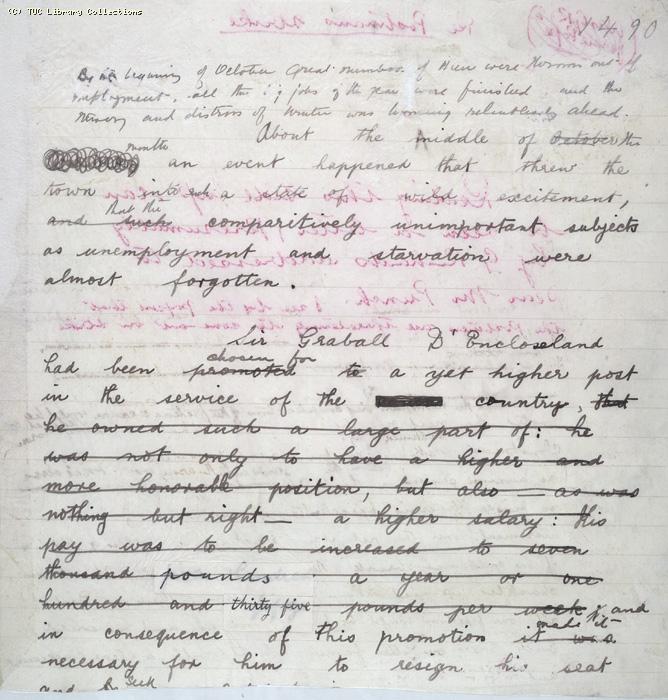 (C) TUC Library Collections
1490
By the beginning of October great numbers of men were thrown out of
employment, all the big jobs of the year were finished, and the
misery and distress of winter was looming relentlessly ahead.
About the middle of October the
month
an event happened that threw the
town into such a state of wild excitement,
that the
and such comparitively unimportant subjects
as unemployment and starvation were
almost forgotten.
Sir Graball D'Encloseland
chosen for
had been promoted to a yet higher post
in the service of the country, that
he owned such a large part of: he
was not only to have a higher and
more honorable position, but also — as was
nothing but right — a higher salary: His
pay was to be increased to seven
thousand pounds a year or one
hundred and thirty five pounds per week; and
made it
in consequence of this promotion it was
necessary for him to resign his seat
and seek